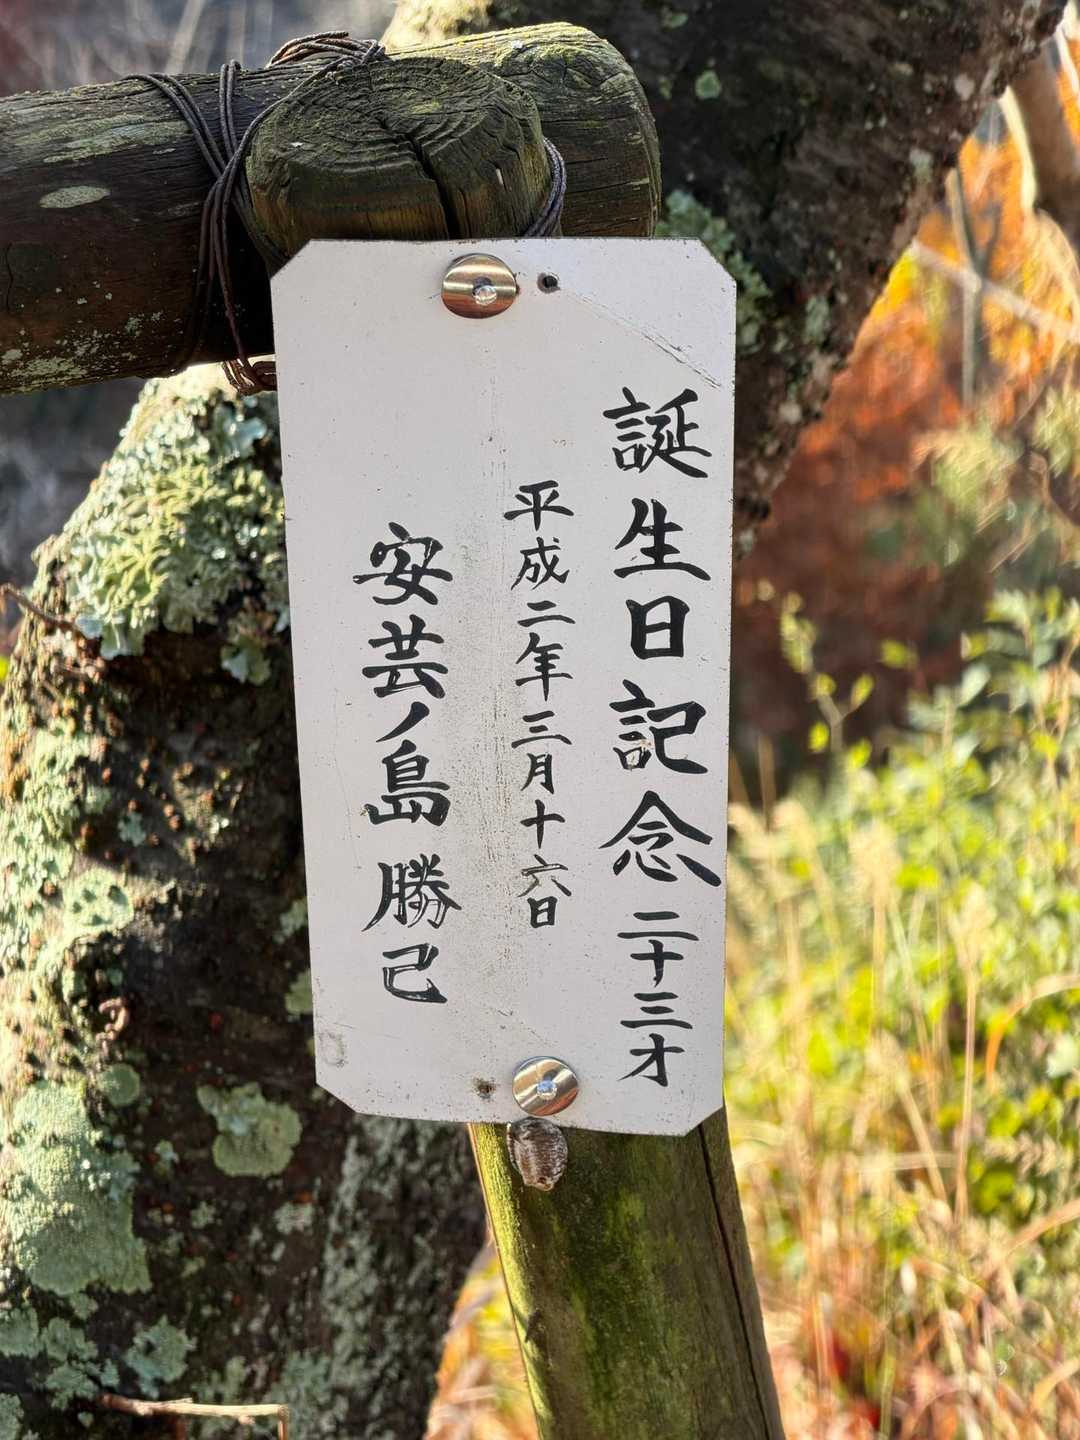 誕生日記念 二十三才
平成二年三月十六日
安芸ノ島 勝己